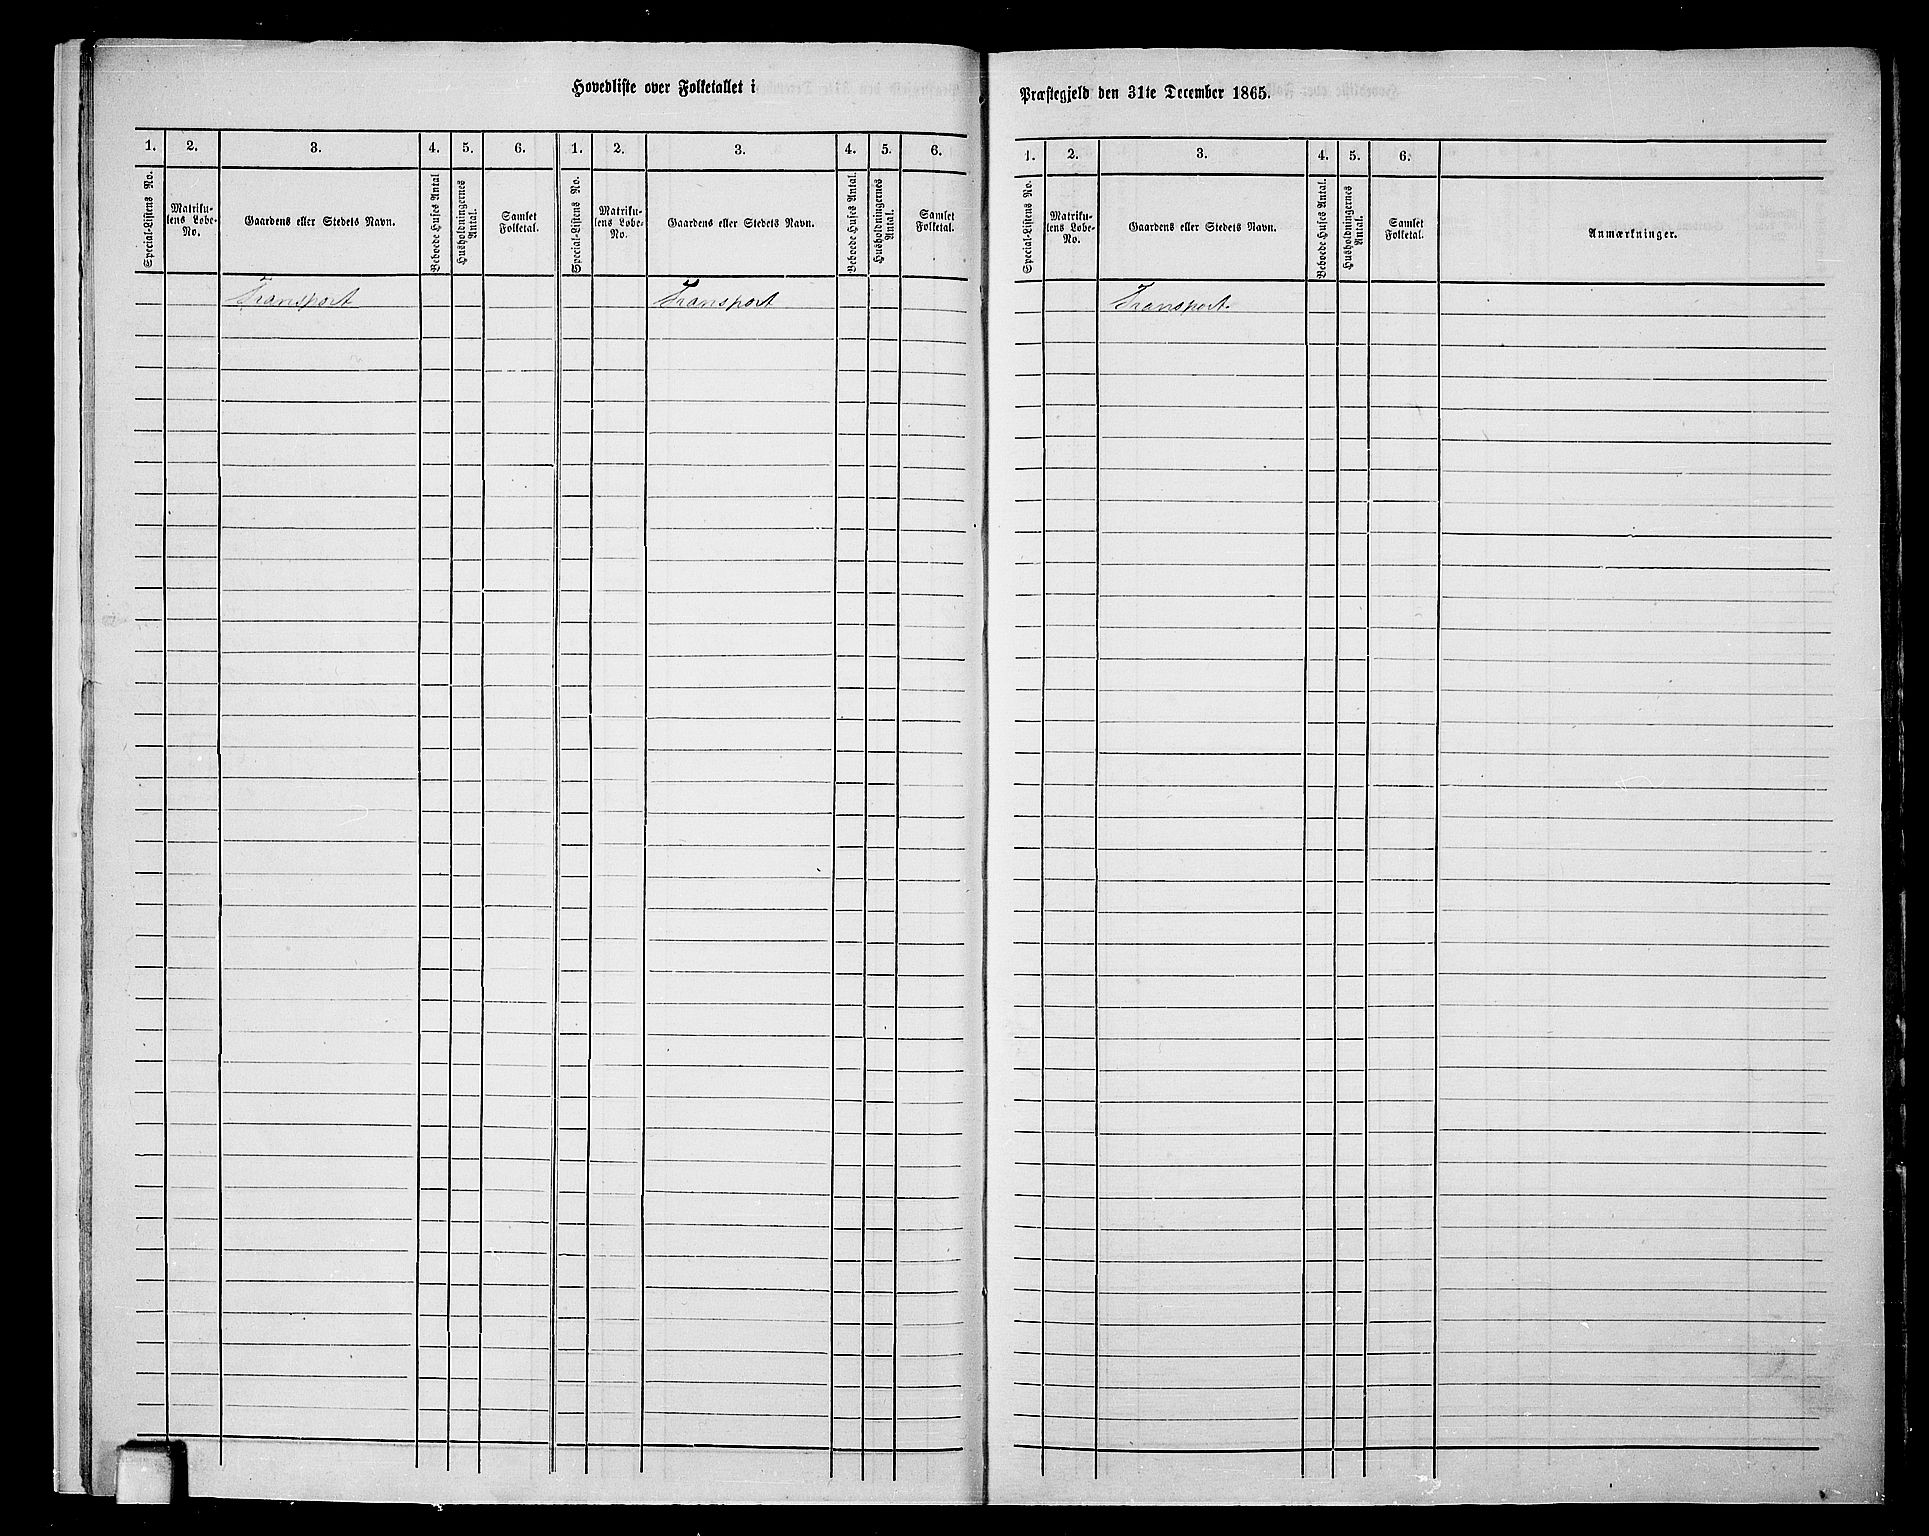 Hovedliste over Folketallet i
1. 2. 3. 4. 5. 6. 1. 2. 3. 4. 5. 6.
Special-Listens No.
Matriku-
lens Løbe-
No.
Gaardens eller Stedets Navn.
Beboede Huses Antal
Husholdningernes
Antal.
Samlet
Folketal.
Special-Listens No.
Matriku-
lens Løbe-
No.
Gaardens eller Stedets Navn.
Beboede Huses Antal.
Husholdningernes
Antal.
Samlet
Folketal.
Transport Transport
Præstegjeld den 31te December 1865.
1. 2. 3. 4. 5. 6.
Special-Listens No.
Matriku-
lens Løbe-
No.
Gaardens eller Stedets Navn.
Beboede Huses Antal.
Husholdningernes
Antal.
Samlet
Folketal.
Anmærkninger.
Transport.